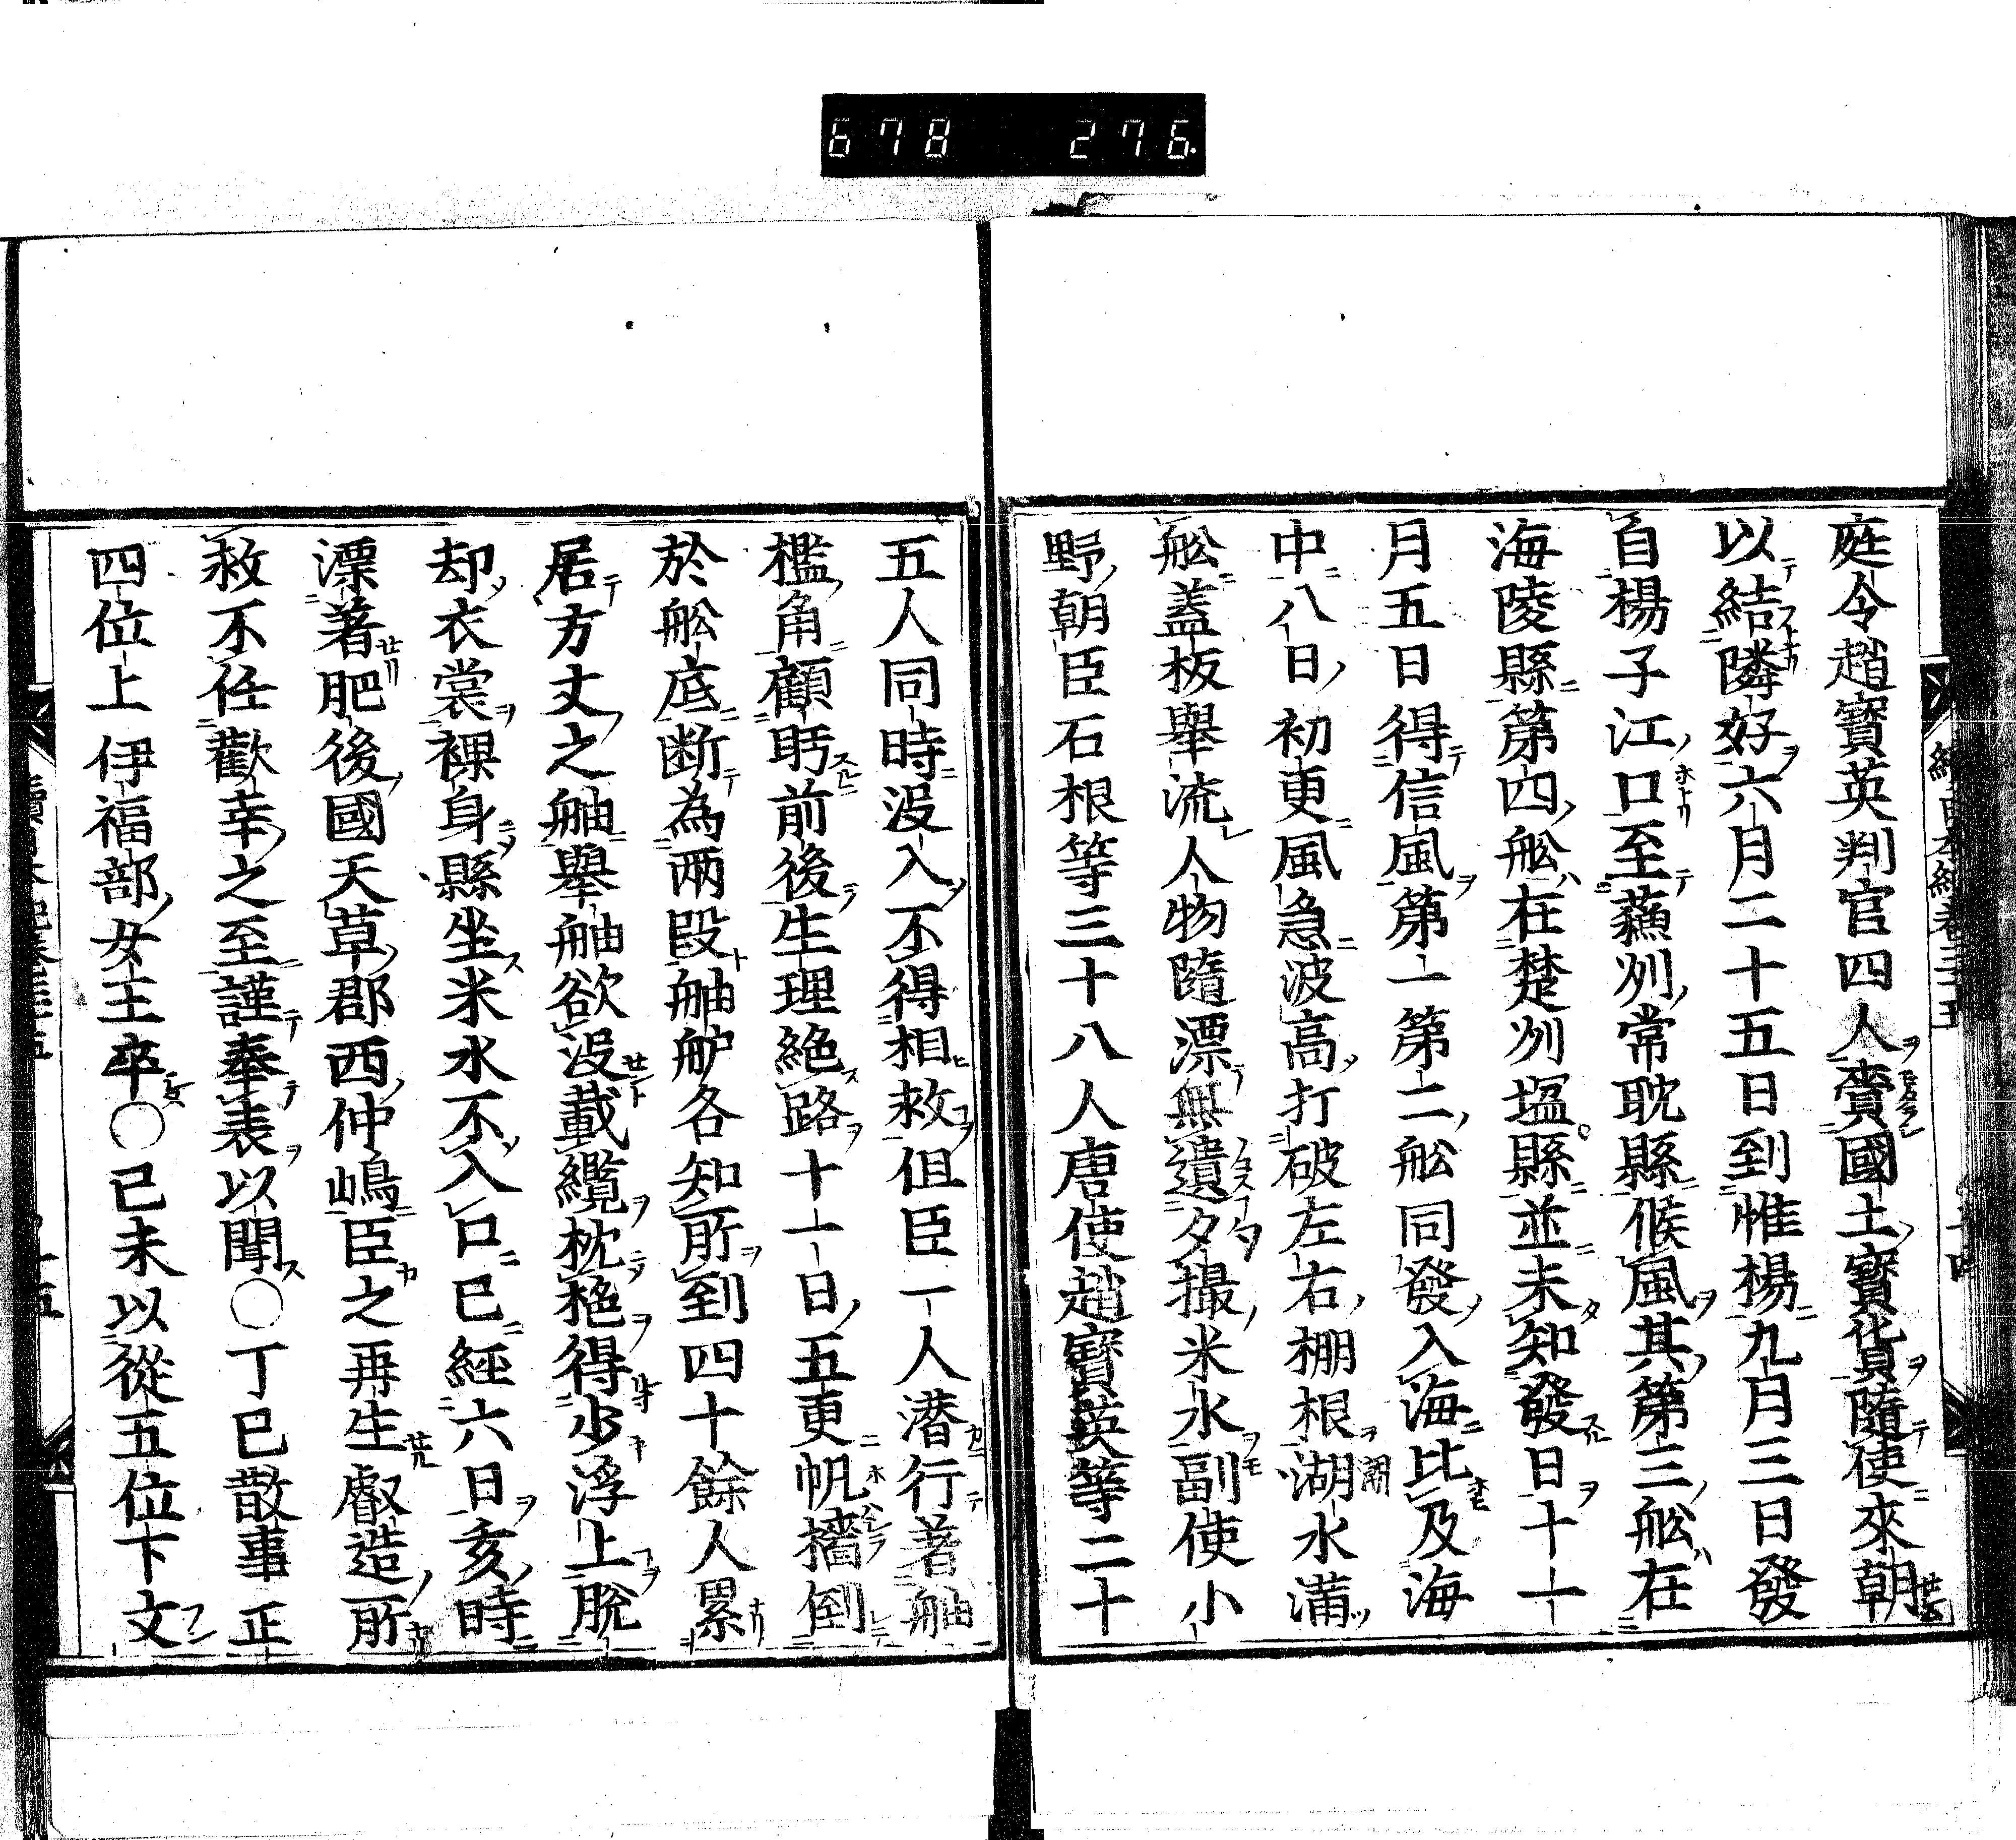 678 276
庭令趙寳英判官四人賷國土寳貨隨使來朝
以結隣好六月二十五日到惟楊九月三日發
自楊子江口至蘓州常耽縣候風其第三舩在
海陵縣第四舩在楚州塩縣並未知發日十一
月五日得信風第一第二舩同發入海比及海
中八日初更風急波高打破左右棚根潮水滿
舩蓋板舉流人物隨漂無遺夕撮米水副使小
野朝臣石根等三十八人唐使趙寳英等二十
五人同時没入不得相救但臣一人潜行著舳
檻角顧眄前後生理絶路十一日五更帆檣倒
於舩底断為兩段舳舮各知所到四十餘人累
居方丈之舳舉舳欲没載纜枕桅得少浮上脫
却衣裳裸身縣坐米水不入口已經六日亥時
漂著肥後國天草郡西仲嶋臣之再生叡造所
救不任歡幸之至謹奉表以聞〇丁巳散事正
四位上伊福部女王卒〇己未以從五位下文